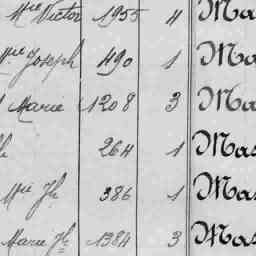 Mie Victor 1955 4 Ma
Vve Joseph 490 1 Ma
Marie 1208 3 Ma
264 1 Mas
Mie Jh 386 1 Mas
Marie Jh 1384 3 Mas